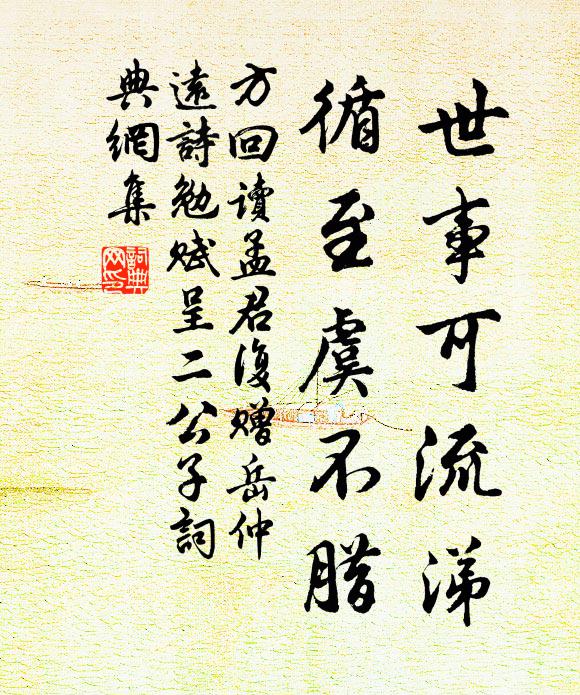 世事可流涕
循至虞不腊
方回讀孟君復贈岳仲
遠詩勉赋呈二公子詞
典網集
詞典
网印